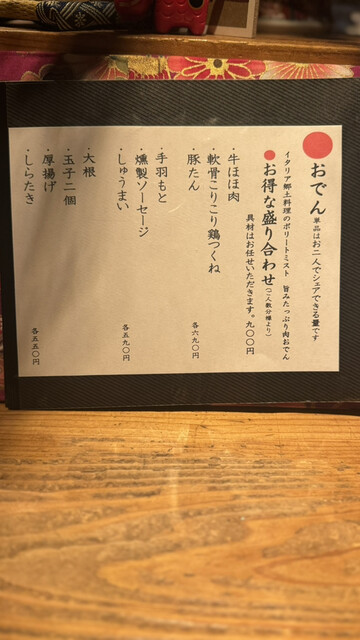 おでん 単品はお二人でシェアできる量です
イタリア郷土料理のボリートミスト 旨みたっぷり肉おでん
お得な盛り合わせ(二人数分様より)
具材はお任せいただきます。九〇〇円
・牛ほほ肉
・軟骨こりこり鶏つくね
・豚たん
各六九〇円
・手羽もと
・燻製ソーセージ
・しゅうまい
各五九〇円
・大根
・玉子二個
・厚揚げ
・しらたき
各五五〇円